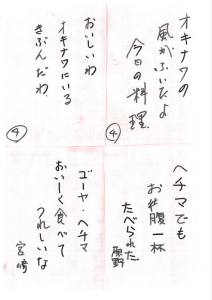 オキナワの
風がふいたよ
今日の料理
④
おいしいわ
オキナワにいる
きぶんだわ
④
ヘチマでも
お社腹一杯
たべられた
原野
ゴーヤ・ヘチマ
おいしく食べて
うれしいな
宮崎